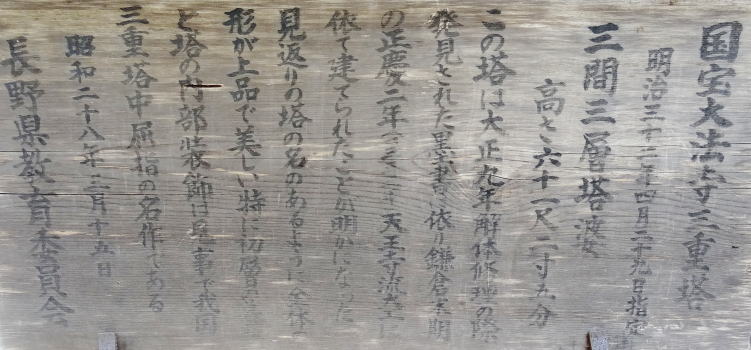 国宝大法寺三重塔
明治三十二年四月二十九日指定
三間三層塔婆
高さ六十一尺二寸五分
この塔は大正九年解体修理の際
発見された墨書に依り鎌倉末期
の正慶二年 天王寺流大工に
依て建てられたことが明かになった
見返りの塔の名のあるように全体の
形が上品で美しい特に初層
と塔の内部装飾は見事で我国
三重塔中屈指の名作である
昭和二十八年三月十五日
長野県教育委員会